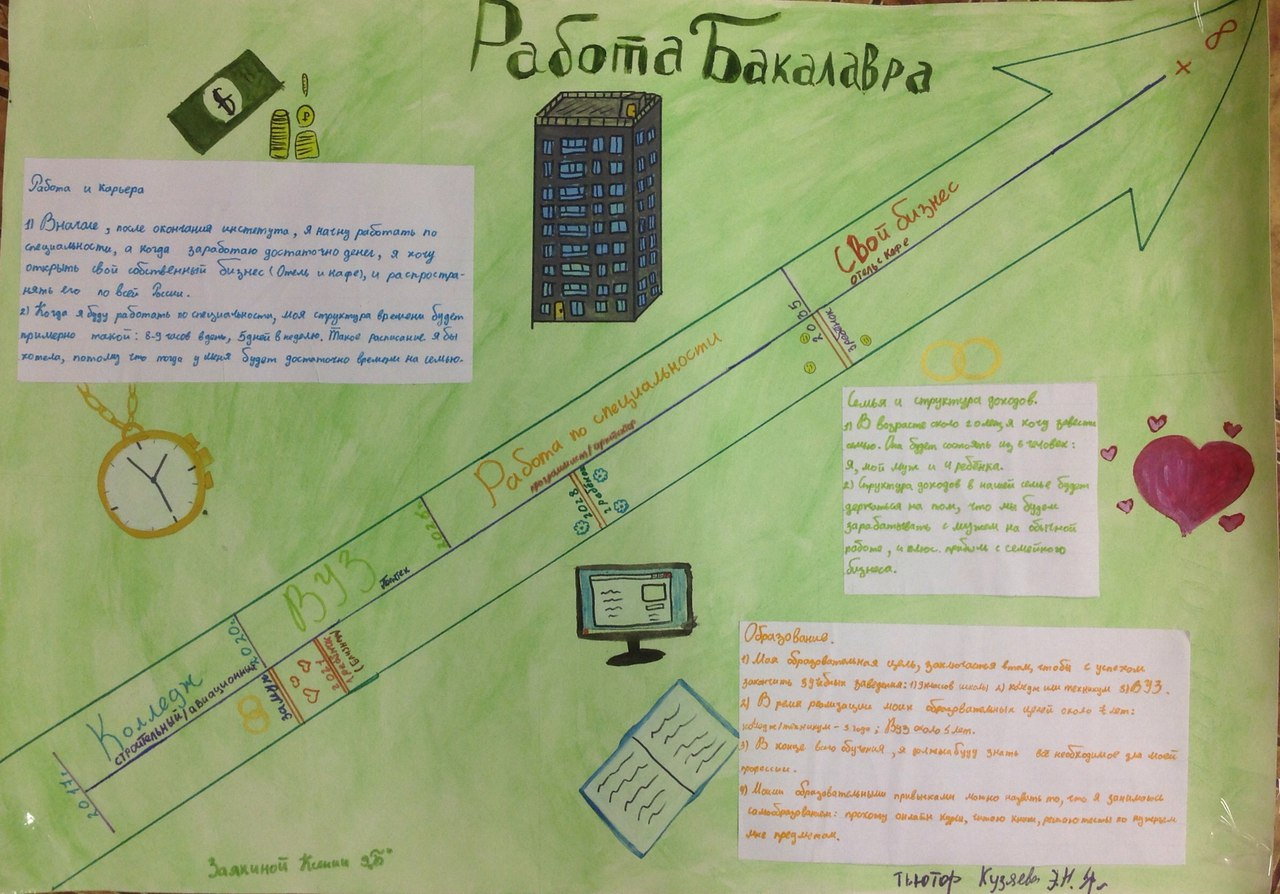 Работа Бакалавра
Работа и карьера
1) Вначале, после окончания института, я начну работать по
специальности, а когда заработаю достаточно денег, я хочу
открыть свой собственный бизнес (Отель и кафе), и распростра-
нять его по всей России.
2) Когда я буду работать по специальности, моя структура времени будет
примерно такой: 8-9 часов в день, 5 дней в неделю. Такое расписание я бы
хотела, потому что тогда у меня будет достаточно времени на семью.
Свой бизнес
отель с кафе
2035
3 ребёнок
Работа по специальности
2028
2 ребёнок
2025
ВУЗ
политех
2020
замуж
1 ребёнок
Колледж
строительный/авиационный
2017
Семья и структура доходов.
1) В возрасте около лет, я хочу завести
семью. Она будет состоять из 6 человек:
я, мой муж и 4 ребёнка.
2) Структура доходов в нашей семье будет
держаться на том, что мы будем
зарабатывать с мужем на обычной
работе, и плюс прибыль с семейного
бизнеса.
Образование.
1) Моя образовательная цель, заключается в том, чтобы с успехом
закончить 3 учебных заведения: 1) 9 классов школы 2) колледж или техникум 3) ВУЗ.
2) Время реализации моих образовательных целей около 7 лет:
колледж/техникум - 3 года; ВУЗ около 5 лет.
3) В конце всего обучения, я должна буду знать всё необходимое для моей
профессии.
4) Моими образовательными привычками можно назвать то, что я занимаюсь
самообразованием: прохожу онлайн курсы, читаю книги, решаю тесты по нужным
мне предметам.
Заякиной Ксении 9"Б"
тьютор Кузяева Э.Н.